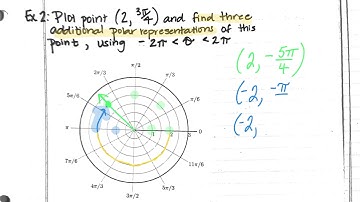 Ex 2: Plot point (2, 3π/4) and find three
additional polar representations of this
point, using -2π < θ < 2π
(2, -5π/4)
(-2, -π/
(-2,
π/2
2π/3
π/3
5π/6
π/6
π
1
2
3
0
7π/6
11π/6
4π/3
5π/3
3π/2